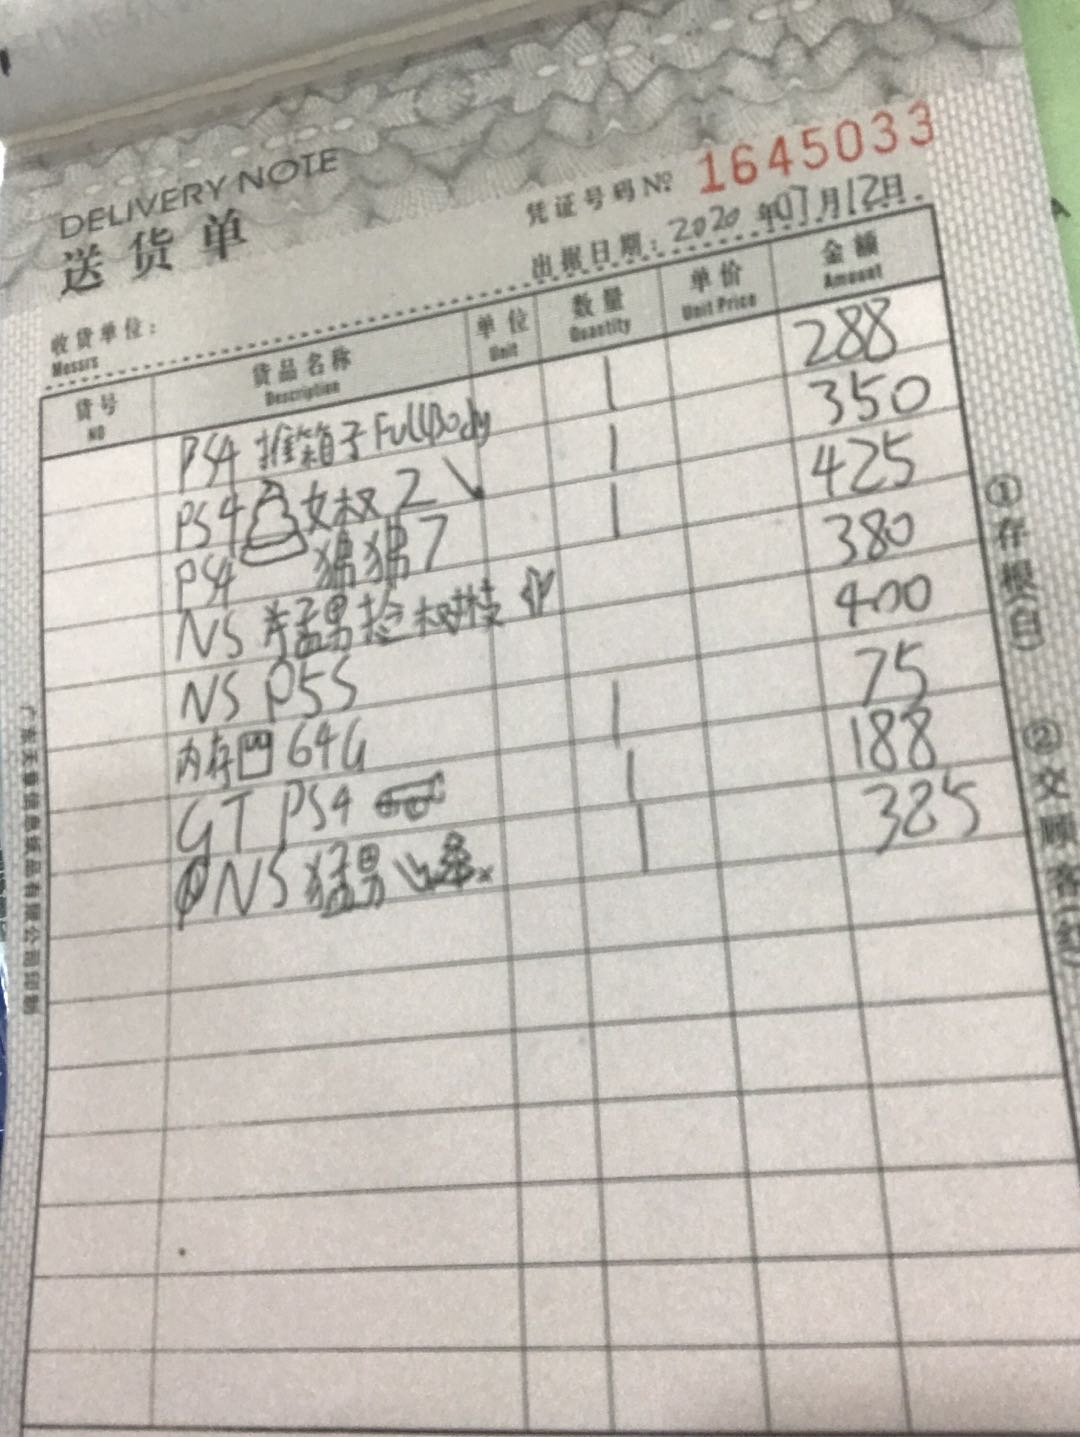 DELIVERY NOTE
送货单
凭证号码 Nº 1645033
出据日期：2020年07月12日
收货单位：
Messrs
货号 货品名称 单位 数量 单价 金额
NO Description Unit Quantity Unit Price Amount
PS4 推箱子 FullBody 1 288
PS4 女权 2 1 350
PS4 狒狒 7 1 425
NS 猛男捡树枝 380
NS P5S 400
内存 64G 1 75
GT PS4 1 188
NS 猛男 1 385
①存根(白)
②交顾客(红)